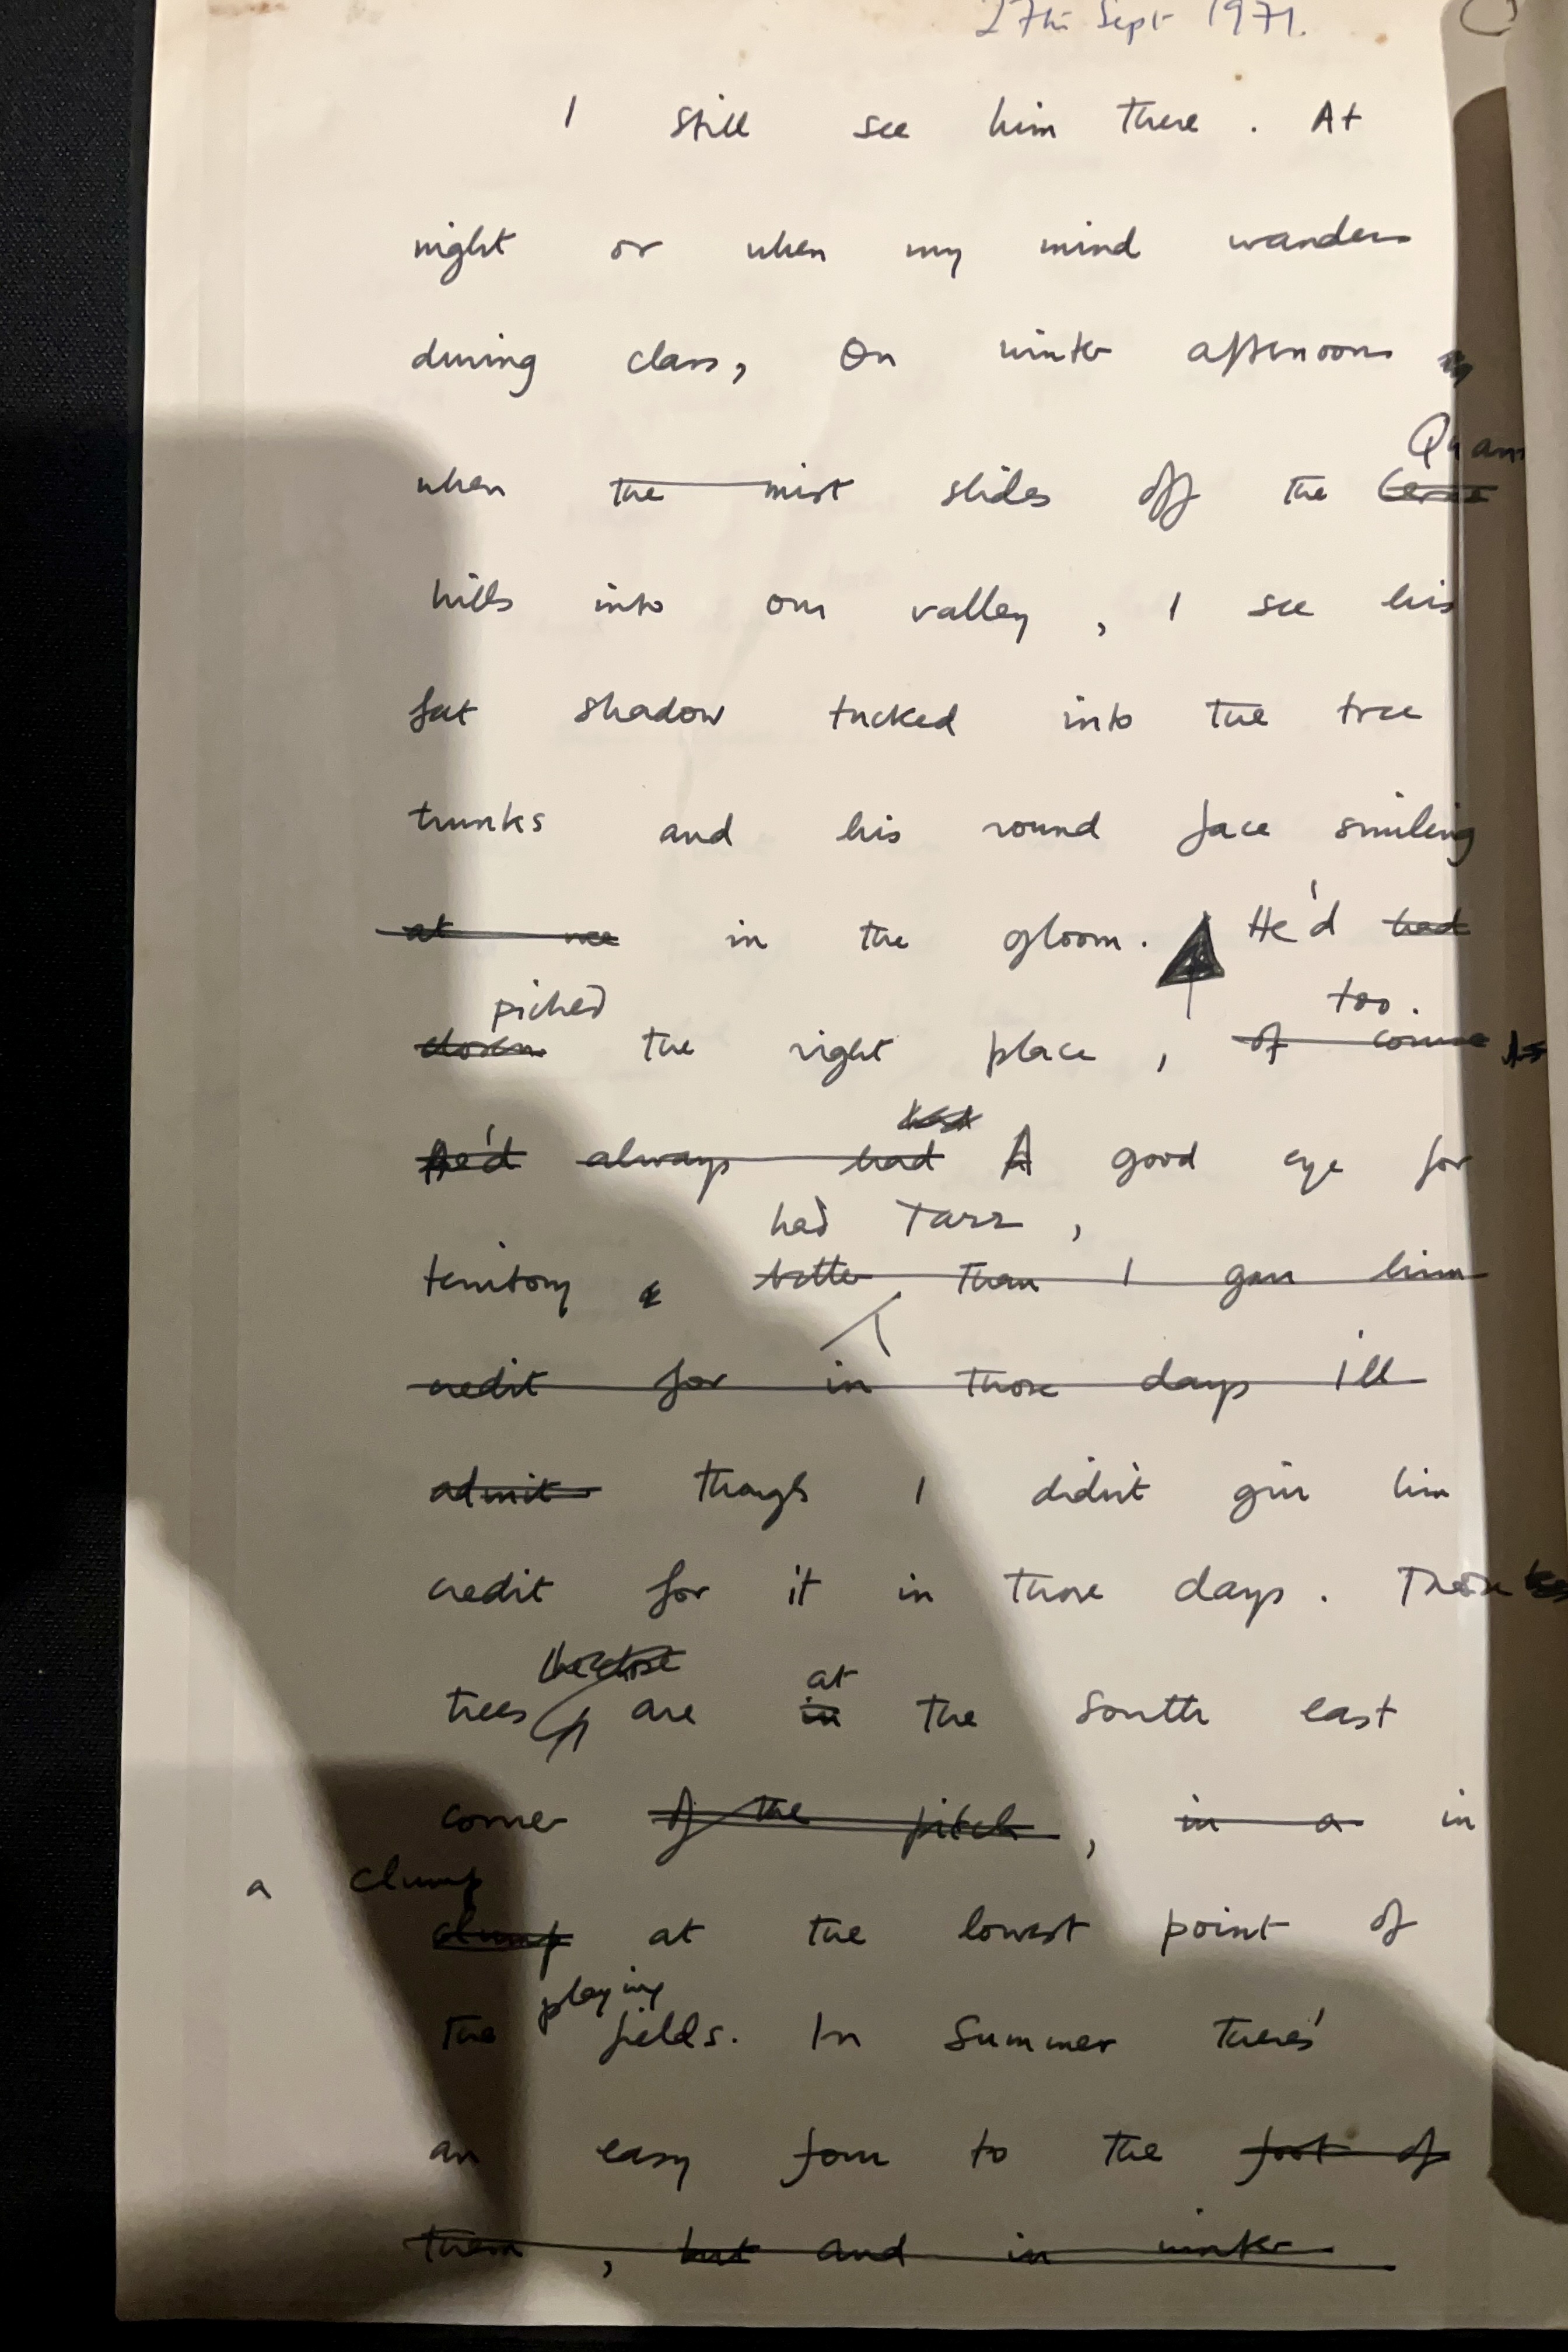 27th Sept 1971.
I still see him there. At
night or when my mind wanders
during class, On winter afternoons
Quan
when the mist slides off the
hills into our valley, I see his
fat shadow tucked into the tree
trunks and his round face smiling
at me in the gloom. He'd had
picked too.
chosen the right place, of course As
He'd always had A good eye for
had Tarr,
territory better than I gave him
credit for in those days I'll
admit though I didn't give him
credit for it in those days. Those
at
trees are in the South east
corner of the pitch, in a in
a clump
clump at the lowest point of
playing
the fields. In Summer there's
an easy four to the foot of
them, but and in winter